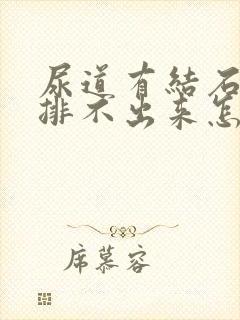 尿道有结石
排不出来怎
席慕容